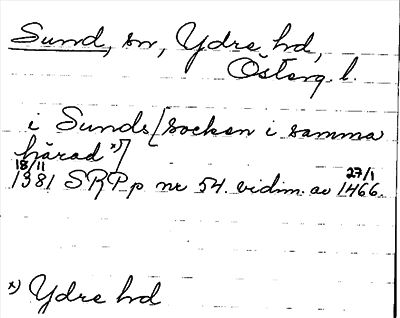 Sund, sn, Ydre hd,
Österg. l.
i Sunds [socken i samma
härad x)]
18/11 27/1
1381 SRPp nr 54. vidim. av 1466.
x) Ydre hd